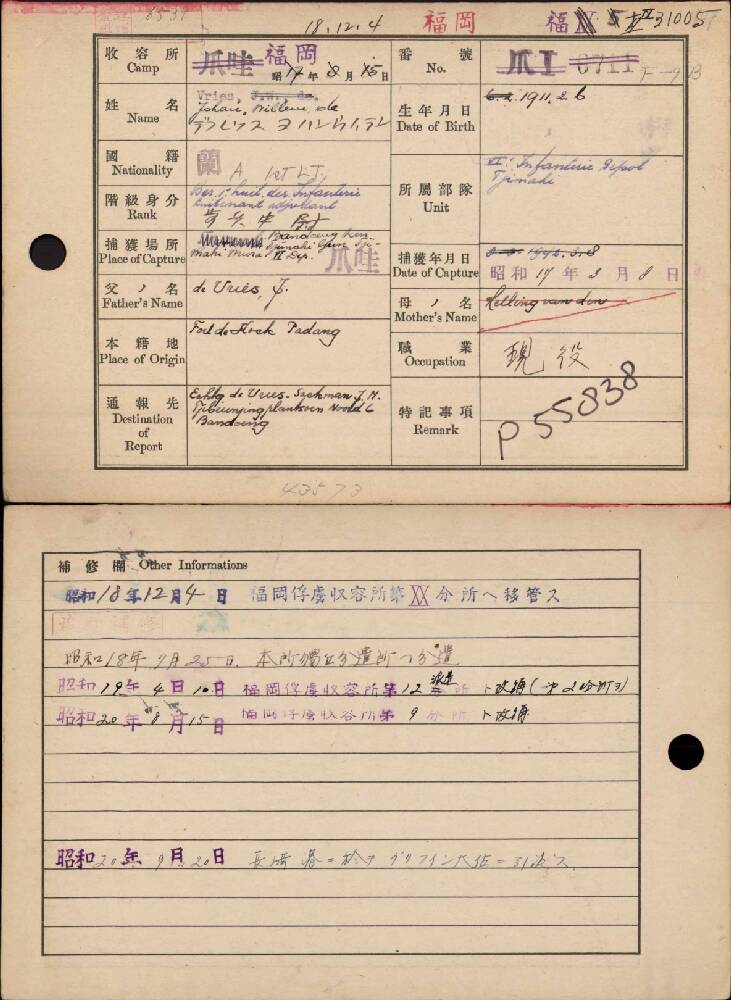 8531 18.12.4 福岡 福 II 31005
収容所 Camp 爪哇 福岡 昭17年8月15日 番號 No. 爪I 8711
姓名 Name Vries, J.W. de.
Johan, Willem, de
デフリース ヨハン ウイレン
生年月日 Date of Birth 6.2. 1911.2.6
國籍 Nationality 蘭 A 1st LT.
所属部隊 Unit II: Infanterie Depot
Tjimahi
階級身分 Rank Res. 1e luit. der Infanterie
luitenant adjudant
捕獲場所 Place of Capture Bandoeng
爪哇
捕獲年月日 Date of Capture 8-3- 1942.3.8
昭和17年3月8日
父ノ名 Father's Name de Vries, J.
母ノ名 Mother's Name Helling van den
本籍地 Place of Origin Fort de Kock Padang
職業 Occupation 現役
通報先 Destination of Report Echtg de Vries-
Tjibeunjingplantsoen Noord 6
Bandoeng
特記事項 Remark P55838
43573
補修欄 Other Informations
昭和18年12月4日 福岡俘虜収容所第XX分所ヘ移管ス
昭和18年 月25日
昭和19年4月10日 福岡俘虜収容所第12 ト改稱
昭和20年8月15日 福岡俘虜収容所第9分所ト改稱
昭和20年9月20日 長崎港ニ於テ